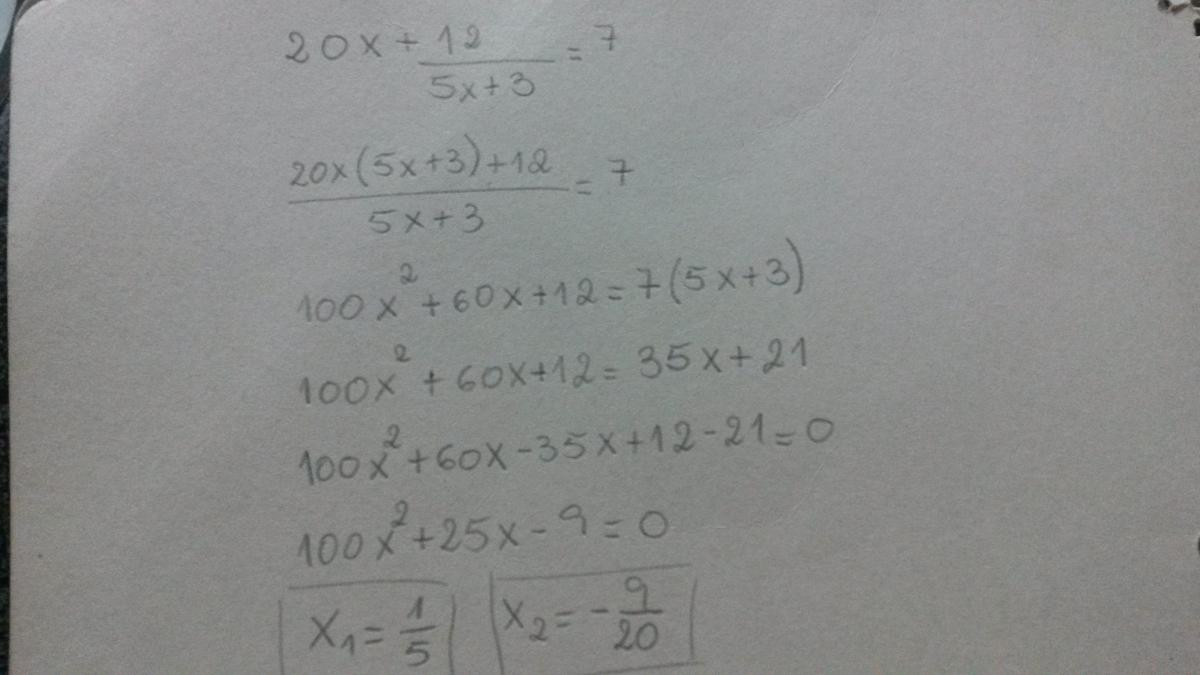 20x + 12/(5x+3) = 7
(20x(5x+3)+12)/(5x+3) = 7
100x² + 60x + 12 = 7(5x+3)
100x² + 60x + 12 = 35x + 21
100x² + 60x - 35x + 12 - 21 = 0
100x² + 25x - 9 = 0
x₁ = 1/5 x₂ = -9/20